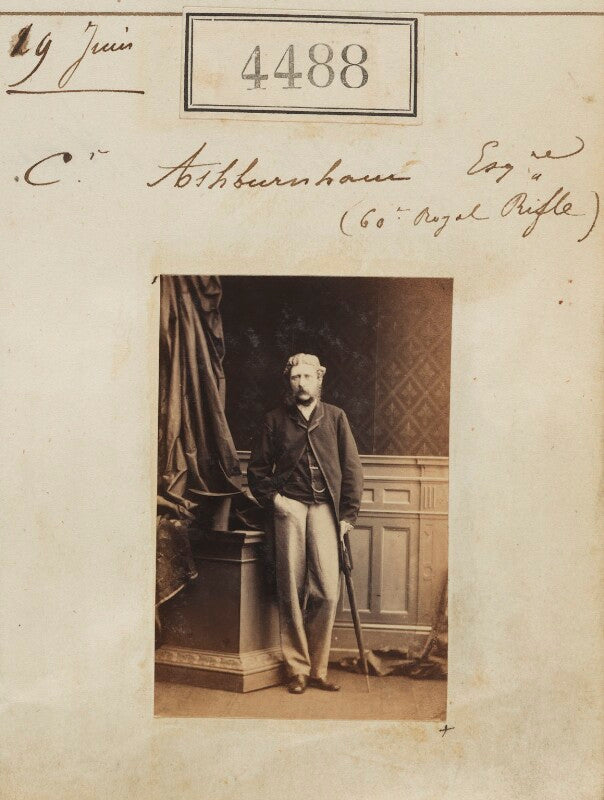 19 Juin
4488
C.r Ashburnham Esq.re
(60.t Royal Rifle)